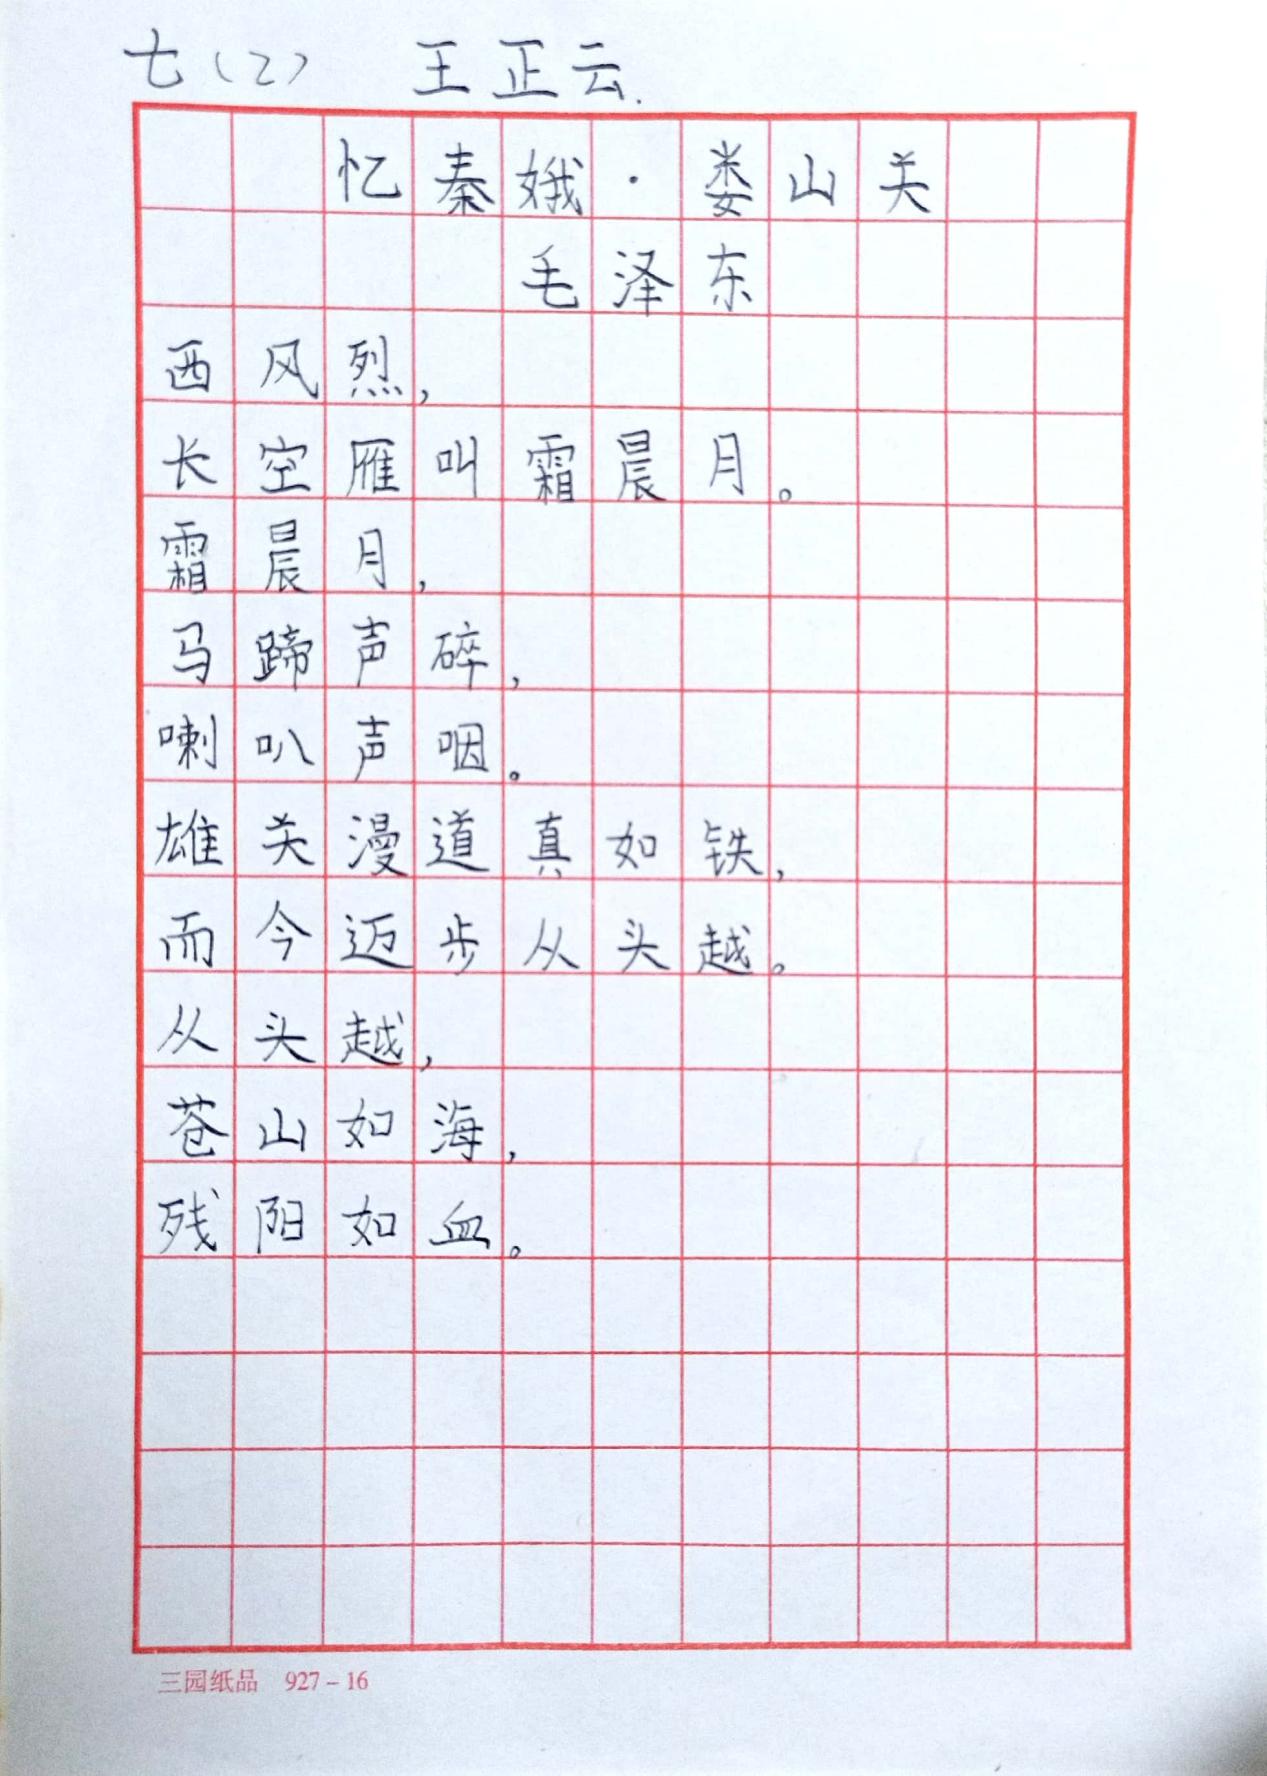 七（2） 王正云.
忆秦娥·娄山关
毛泽东
西风烈，
长空雁叫霜晨月。
霜晨月，
马蹄声碎，
喇叭声咽。
雄关漫道真如铁，
而今迈步从头越。
从头越，
苍山如海，
残阳如血。
三园纸品 927-16